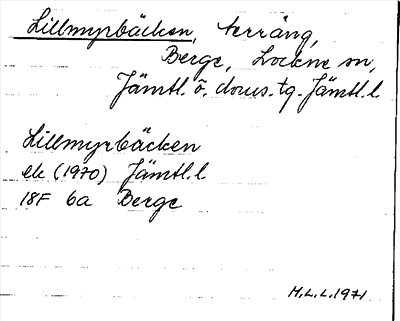 Lillmyrbäcken, terräng,
Berge, Lockne sn,
Jämtl. ö. doms. tg. Jämtl. l
Lillmyrbäcken
ek (1970) Jämtl. l
18F 6a Berge
H.L.L. 1971